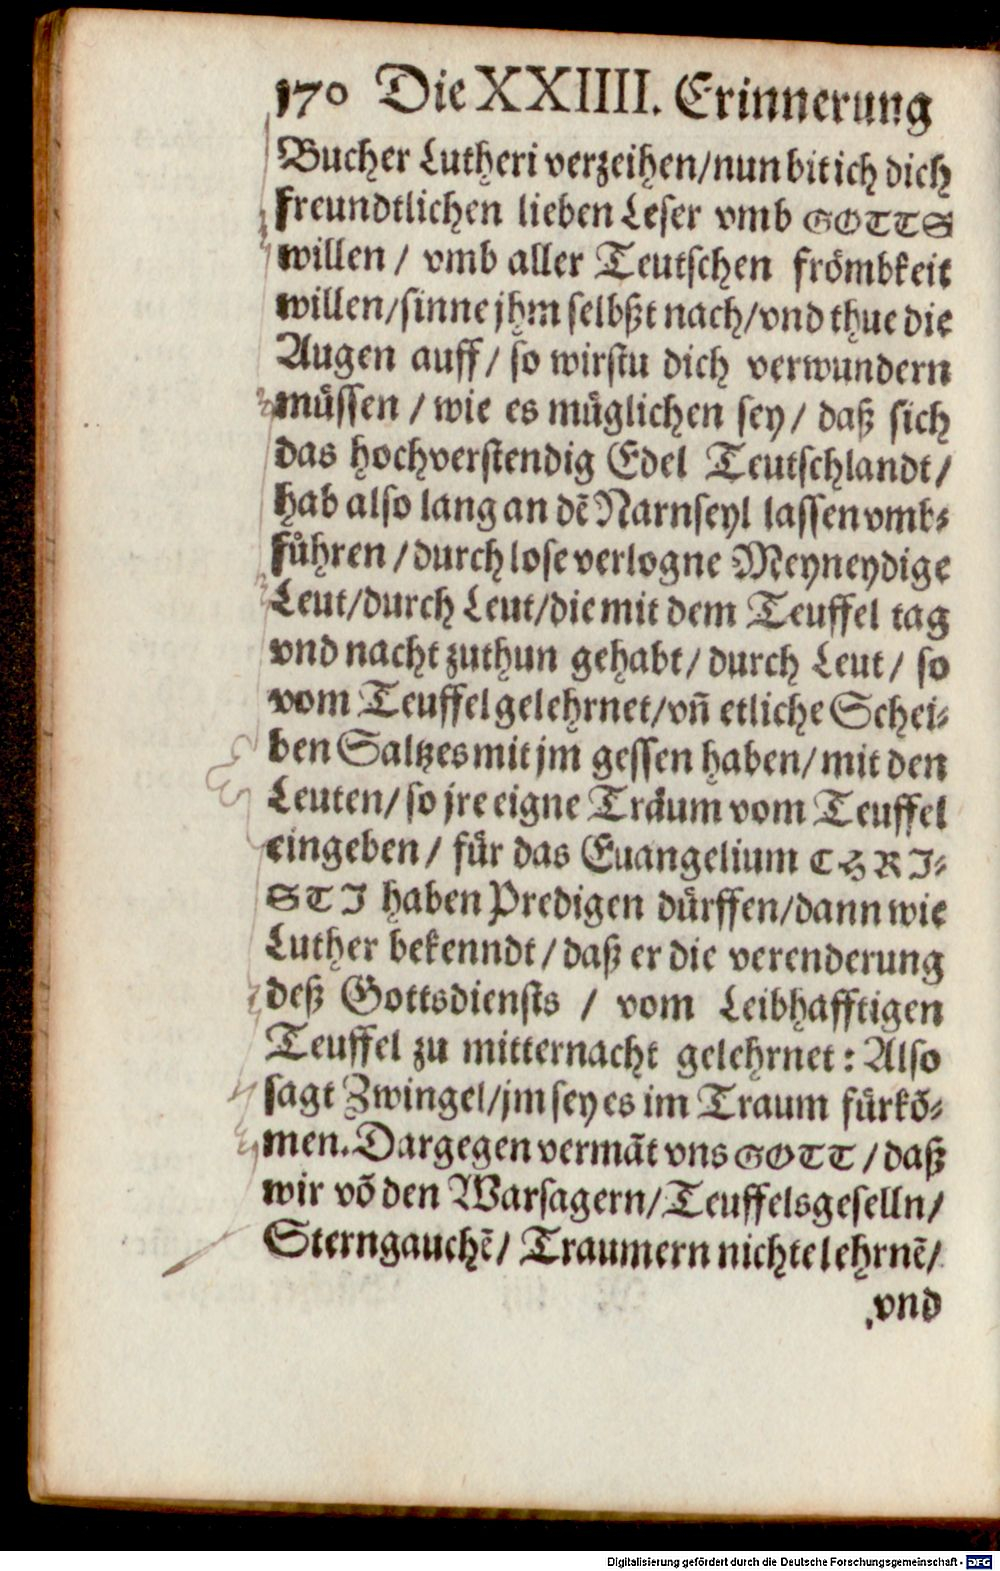 170 Die XXIIII. Erinnerung
Bucher Lutheri verzeihen/nun bit ich dich
freundtlichen lieben Leser vmb GOTTS
willen / vmb aller Teutschen frömbkeit
willen/sinne jhm selbßt nach/vnd thue die
Augen auff / so wirstu dich verwundern
müssen / wie es müglichen sey / daß sich
das hochverstendig Edel Teutschlandt/
hab also lang an dẽ Narnseyl lassen vmb⸗
führen / durch lose verlogne Meyneydige
Leut/durch Leut/die mit dem Teuffel tag
vnd nacht zuthun gehabt/ durch Leut / so
vom Teuffel gelehrnet/vñ etliche Schei⸗
ben Saltzes mit jm gessen haben/ mit den
Leuten/ so jre eigne Träum vom Teuffel
eingeben / für das Euangelium CHRI⸗
STI haben Predigen dürffen/dann wie
Luther bekenndt / daß er die verenderung
deß Gottsdiensts / vom Leibhafftigen
Teuffel zu mitternacht gelehrnet: Also
sagt Zwingel/jm sey es im Traum fürkõ⸗
men. Dargegen vermãt vns GOTT / daß
wir võ den Warsagern/Teuffelsgeselln/
Sterngauchẽ/ Traumern nichte lehrnẽ/
vnd
Digitalisierung gefördert durch die Deutsche Forschungsgemeinschaft - DFG